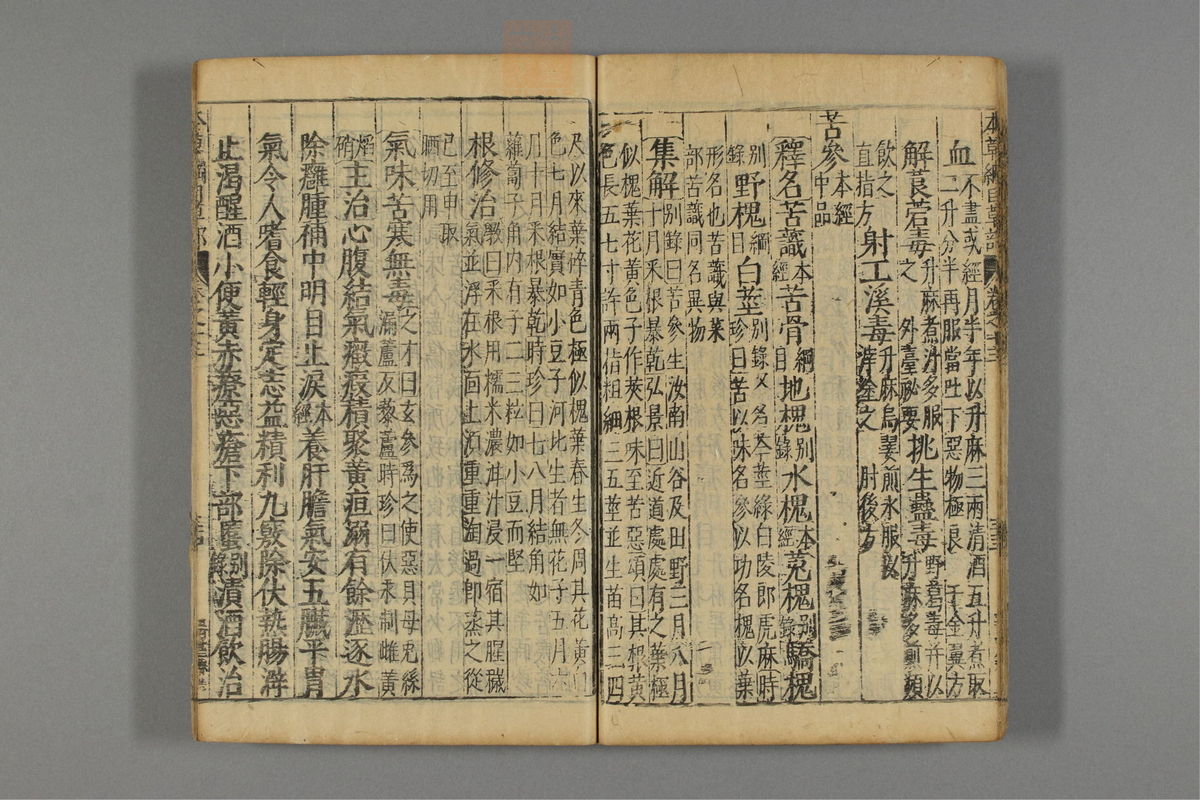 本草綱目草部 卷之十三
血不盡或經月半年以升麻三兩清酒五升煮取二升分半再服當吐下惡物極良 千金翼方
解莨菪毒升麻煮汁多服之 外臺祕要 挑生蠱毒野葛毒并以升麻多煎頻
飲之直指方 射工溪毒升麻烏翣煎水服以滓塗之 肘後方
苦參本經中品
釋名苦蘵本經 苦骨綱目 地槐別錄 水槐本經 菟槐別錄 驕槐
別錄 野槐綱目 白莖別錄又名岑莖綠白陵郎虎麻時珍曰苦以味名參以功名槐以葉
形名也苦蘵與菜部苦蘵同名異物
集解別錄曰苦參生汝南山谷及田野三月八月十月采根暴乾弘景曰近道處處有之葉極
似槐葉花黃色子作莢根味至苦惡頌曰其根黃色長五七寸許兩指粗細三五莖並生苗高三四
尺以來葉碎青色極似槐葉春生冬凋其花黃白色七月結實如小豆子河北生者無花子五月六
月十月采根暴乾時珍曰七八月結角如蘿蔔子角內有子二三粒如小豆而堅
根修治斅曰采根用糯米濃泔汁浸一宿其腥穢氣並浮在水面上須重重淘過卽蒸之從
巳至申取晒切用
氣味苦寒無毒之才曰玄參爲之使惡貝母兔絲漏蘆反藜蘆時珍曰伏汞制雌黃
焰硝 主治心腹結氣癥瘕積聚黃疸溺有餘瀝逐水
除癰腫補中明目止淚本經 養肝膽氣安五臟平胃
氣令人嗜食輕身定志益精利九竅除伏熱腸澼
止渴醒酒小便黃赤療惡瘡下部䘌別錄 漬酒飲治